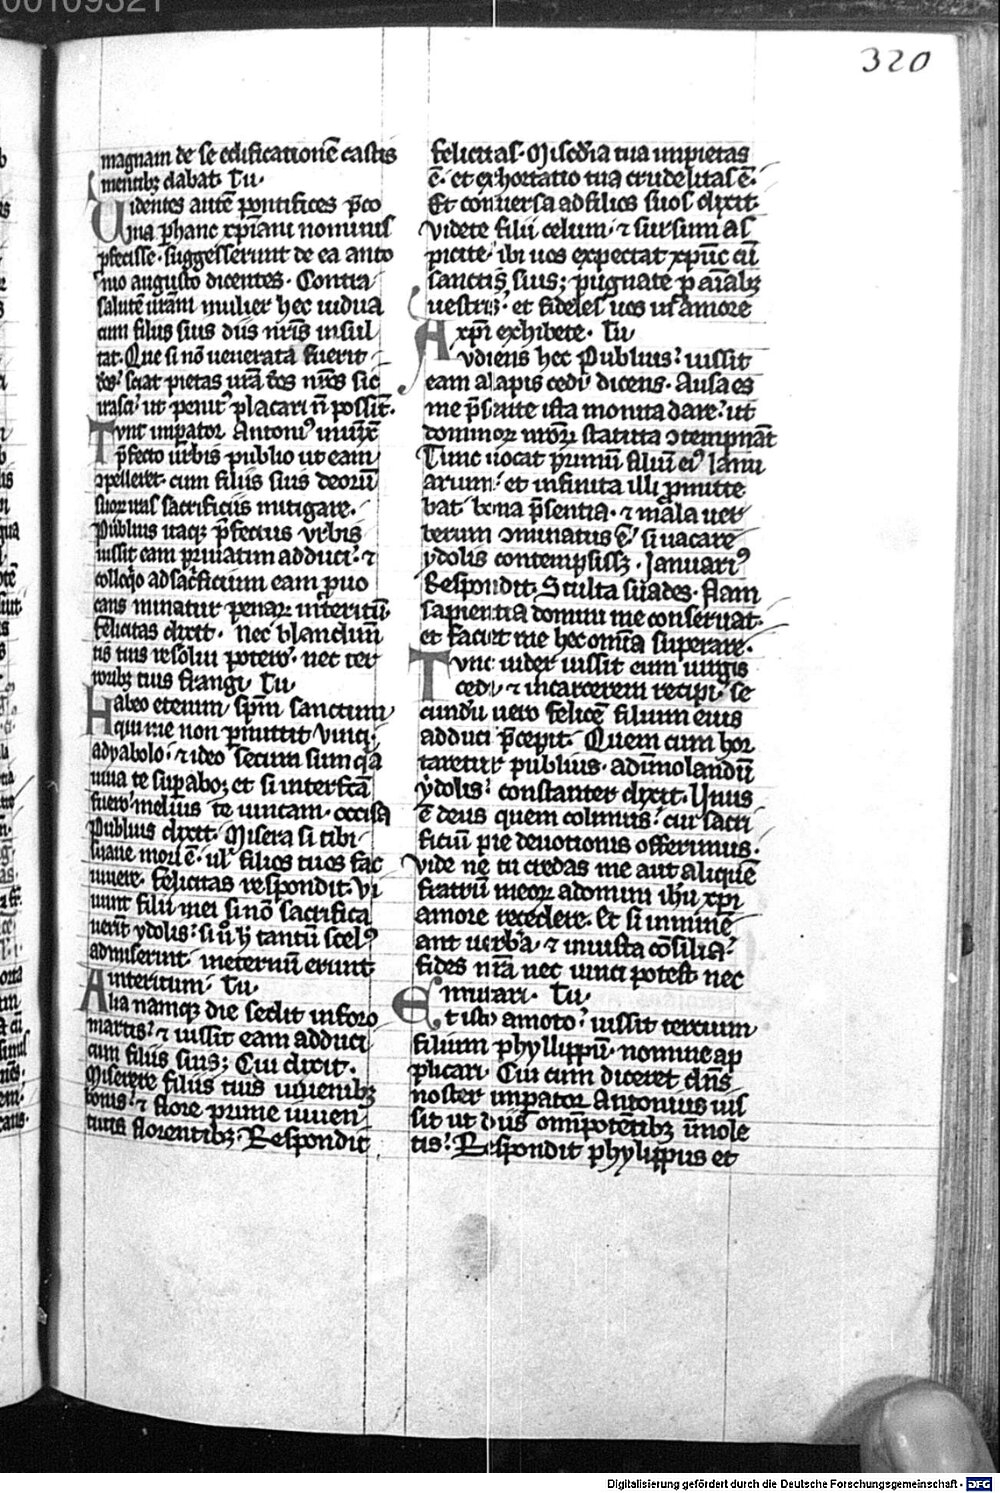 00109321
320
magnam de se edificatione᷑ castis
mentibȝ dabat. Tu.
Uidentes aute᷑ pontifices p̄co
nia ꝑ hanc xp̄iani nominis
ꝑfecisse. suggesserunt de ea anto
nio augusto dicentes. Contra
salutē urām mulier hec uidua
cum filiis suis diis nr̄is insul
tat. Que si nō uenerata fuerit
dōs. sciat pietas urā dōs nr̄os sic
irasci. ut penit᷒ placari n̄ possīt.
Tunc imꝑator Antoni᷒ iniūxͭ
p̄fecto urbis publio ut eam
ꝯpelleret. cum filiis suis deorū
suoꝝ iras sacrificiis mitigare.
Publius itaqȝ p̄fectus urbis
iussit eam priuatim adduci. ⁊
colloq̄io ad sac̄ficium eam ꝓuo
cans minatur penaꝝ interitū.
Felicitas dixit. nec blandim̄
tis tuis resolui potero. nec ter
roribȝ tuis frangi. Tu.
Habeo etenim sp̄m sanctum
qui me non ꝑmittit uinci
a dyabolo. ⁊ ideo secura sum qa
uiua te suꝑabo; et si interfc̄a
fuero. melius te uincam. occisa
Publius dixit. Misera si tibi
suaue mori ē. ul᷑ filios tuos fac
uiuere. Felicitas respondit. Vi
uunt filii mei si nō sacrifica
uerīt ydolis. si ū h̄ tantū scel᷒
admiserint. in eternū erunt
interitum. Tu.
Alia namqȝ die sedit in foro
martis. ⁊ iussit eam adduci
cum filiis suis; Cui dixit.
Miserere filiis tuis iuuenibȝ
bonis. ⁊ flore prime iuuen
tutis florentibȝ. Respondit
felicitas. Misc̄dia tua impietas
ē. et exhortatio tua crudelitas ē.
Et conuersa ad filios suos dixit.
Videte filii celum. ⁊ sursum as
picite. ibi uos expectat xp̄uc cū
sanctis suis; pugnate ꝓ aīabȝ
uestris. et fideles uos in amore
xp̄i exhibete. Tu
Audiens hec Publius. iussit
eam alapis cedi. dicens. Ausa es
me p̄sente ista monita dare. ut
dominoꝝ nr̄oꝝ statuta ꝯtempnāt
Tunc uocat primū filiū ei᷒ Ianu
arium. et infinita illi ꝓmitte
bat bona p̄sentia. ⁊ mala uer
berum ꝯminatus ē. si uacare
ydolis contempsissȝ. Ianuari᷒
Respondit. Stulta suades. Nam
sapientia domini me conseruat.
et faciet me hec om̄ia superare.
Tunc iudex iussit eum uirgis
cedi. ⁊ in carcerem recipi. se
cundū uero felicē filium eius
adduci p̄cepit. Quem cum hor
taretur publius. ad īmolandū
ydolis. constanter dixit. Unus
ē deus quem colimus. cui sacri
ficiū pie deuotionis offerimus.
Vide ne tu credas me aut aliquē
fratrū meoꝝ a domini ihū xp̄i
amore recedere. Et si inminē
ant uerb̄a. ⁊ iniusta cōsilia.
fides nr̄a nec uinci potest nec
mutari. Tu.
Et isto amoto. iussit tercium
filium phyllippū. nomine ap
plicari. Cui cum diceret dn̄s
noster imꝑator Antonius ius
sit ut diis omīpotētibȝ īmole
tis. Respondit phylippus et
Digitalisierung gefördert durch die Deutsche Forschungsgemeinschaft - DFG